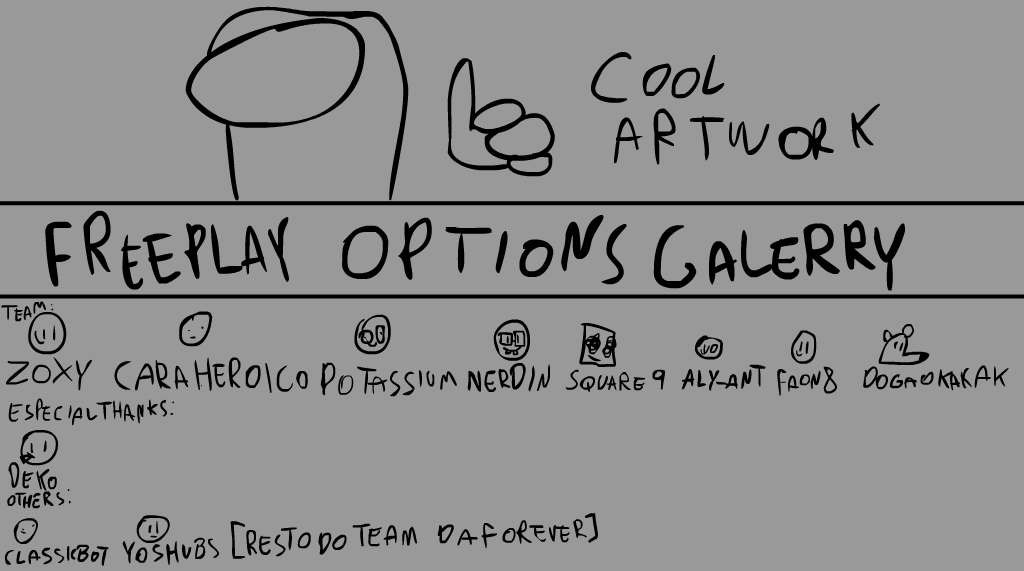 COOL
ARTWORK
FREEPLAY OPTIONS GALERRY
TEAM:
ZOXY CARAHEROICO POTASSIUM NERDIN SQUARE9 ALY-ANT FAON8 DOGAOKAKAK
ESPECIAL THANKS:
DEKO
OTHERS:
CLASSICBOT YOSHUBS [RESTO DO TEAM DA FOREVER]